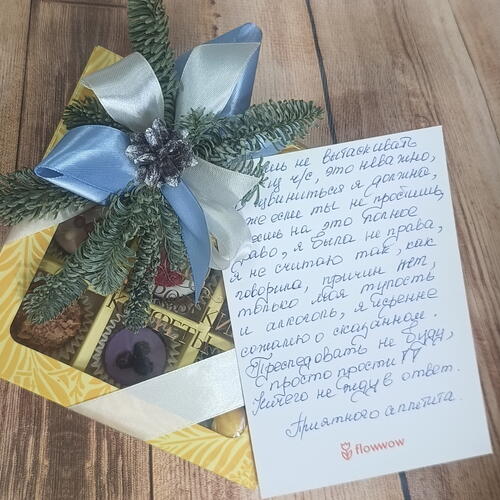 не вытаскивать
ч/с, это неважно,
извиниться я должна,
даже если ты не простишь,
имеешь на это полное
право, я была не права,
я не считаю так, как
говорила, причин нет,
только моя тупость
и алкоголь, я искренне
сожалею о сказанном.
Преследовать не буду,
просто прости
Ничего не жду в ответ.
Приятного аппетита.
flowwow